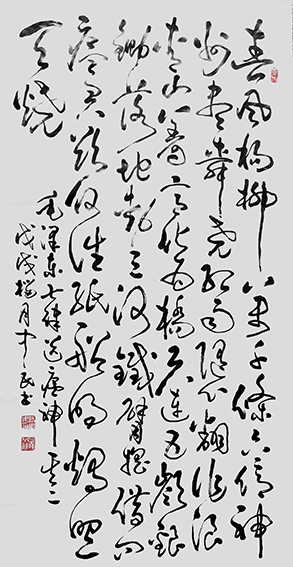 春风杨柳万千条六亿神
州尽舜尧红雨随心翻作浪
青山着意化为桥天连五岭银
锄落地动三河铁臂摇借问
瘟君欲何往纸船明烛照
天烧
毛泽东七律送瘟神其二
戊戌梅月十民书